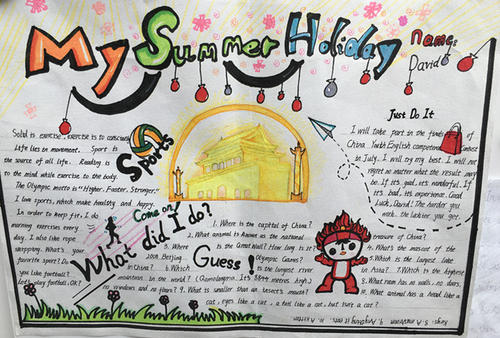 My Summer Holiday
Name:
David
Just Do It
I will take part in the
of
China Youth English competement Contest
in July. I will try my best. I will not
regret no matter what the result may
be. If it's good, it's wonderful. If
it's bad, it's experience. Good
Luck, David! The harder you
work, the luckier you get.
is exercise, exercise is to
Life lies in movement. Sport is
the source of all life. Reading is
to the mind while exercise to the body.
The Olympic motto is "Higher, Faster, Stronger."
I love sports, which make healthy and happy.
In order to keep fit, I do
morning exercises every
day. I also like rope
skipping. What's your
favorite sport? Do
you like football?
football, OK?
Sports
Come on!
What did I do?
Guess!
1. Where is the capital of China?
2. What animal is known as the national treasure of China?
3. Where is the Great Wall? How long is it?
4. What's the mascot of the
2008 Beijing Olympic Games?
5. Which is the largest lake
in China? 6. Which is the longest river in Asia? 7. Which is the highest
mountain in the world? (Qomolangma. It's 8844 metres high)
8. What room has no walls, no doors,
no windows and no floors? 9. What is smaller than an insect's mouth?
10. What animal has a head like a
cat, eyes like a cat, a tail like a cat, but isn't a cat?
Keys: 8. Mushroom 9. Anything it eats 10. A kitten